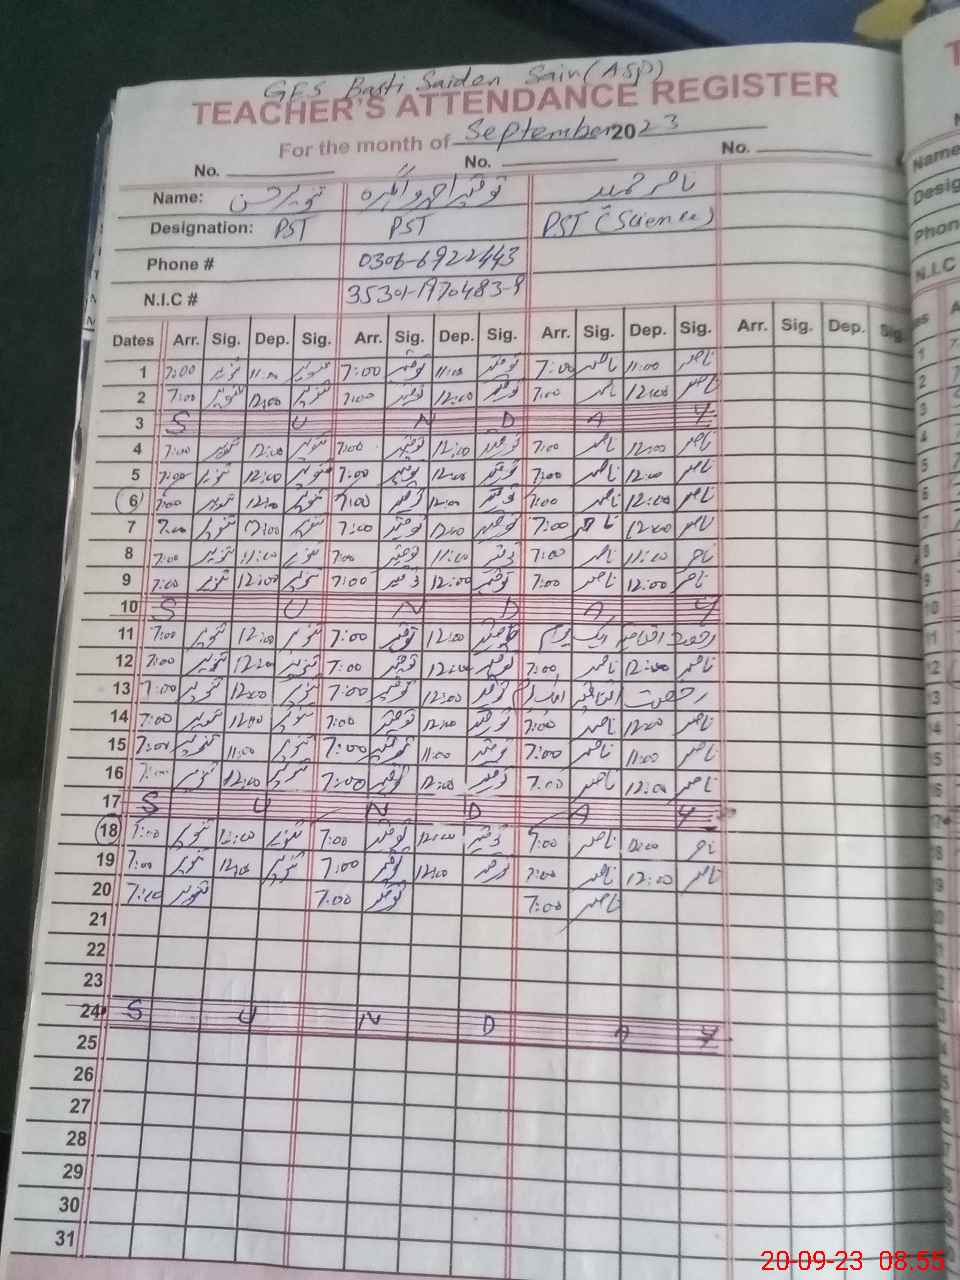 GES Basti Saiden Sain (ASP)
TEACHER'S ATTENDANCE REGISTER
For the month of September 2023
No. No. No.
Name: تنویر حسن توقیر احمد ناصر حمید
Designation: PST PST PST (Science)
Phone # 0306-6922443
N.I.C # 35301-1970483-9
Dates Arr. Sig. Dep. Sig. Arr. Sig. Dep. Sig. Arr. Sig. Dep. Sig. Arr. Sig. Dep. Sig.
1 7:00 تنویر 11:00 تنویر 7:00 توقیر 11:00 توقیر 7:00 ناصر 11:00 ناصر
2 7:00 تنویر 12:00 تنویر 7:00 توقیر 12:00 توقیر 7:00 ناصر 12:00 ناصر
3 S U N D A Y
4 7:00 تنویر 12:00 تنویر 7:00 توقیر 12:00 توقیر 7:00 ناصر 12:00 ناصر
5 7:00 تنویر 12:00 تنویر 7:00 توقیر 12:00 توقیر 7:00 ناصر 12:00 ناصر
6 7:00 تنویر 12:00 تنویر 7:00 توقیر 12:00 توقیر 7:00 ناصر 12:00 ناصر
7 7:00 تنویر 12:00 تنویر 7:00 توقیر 12:00 توقیر 7:00 ناصر 12:00 ناصر
8 7:00 تنویر 11:00 تنویر 7:00 توقیر 11:00 توقیر 7:00 ناصر 11:00 ناصر
9 7:00 تنویر 12:00 تنویر 7:00 توقیر 12:00 توقیر 7:00 ناصر 12:00 ناصر
10 S U N D A Y
11 7:00 تنویر 12:00 تنویر 7:00 توقیر 12:00 توقیر رخصت اتفاقیہ ایک یوم
12 7:00 تنویر 12:00 تنویر 7:00 توقیر 12:00 توقیر 7:00 ناصر 12:00 ناصر
13 7:00 تنویر 12:00 تنویر 7:00 توقیر 12:00 توقیر رخصت اتفاقیہ
14 7:00 تنویر 12:00 تنویر 7:00 توقیر 12:00 توقیر 7:00 ناصر 12:00 ناصر
15 7:00 تنویر 11:00 تنویر 7:00 توقیر 11:00 توقیر 7:00 ناصر 11:00 ناصر
16 7:00 تنویر 12:00 تنویر 7:00 توقیر 12:00 توقیر 7:00 ناصر 12:00 ناصر
17 S U N D A Y
18 7:00 تنویر 12:00 تنویر 7:00 توقیر 12:00 توقیر 7:00 ناصر 12:00 ناصر
19 7:00 تنویر 12:00 تنویر 7:00 توقیر 12:00 توقیر 7:00 ناصر 12:00 ناصر
20 7:00 تنویر 7:00 توقیر 7:00 ناصر
21
22
23
24 S U N D A Y
25
26
27
28
29
30
31
20-09-23 08:55